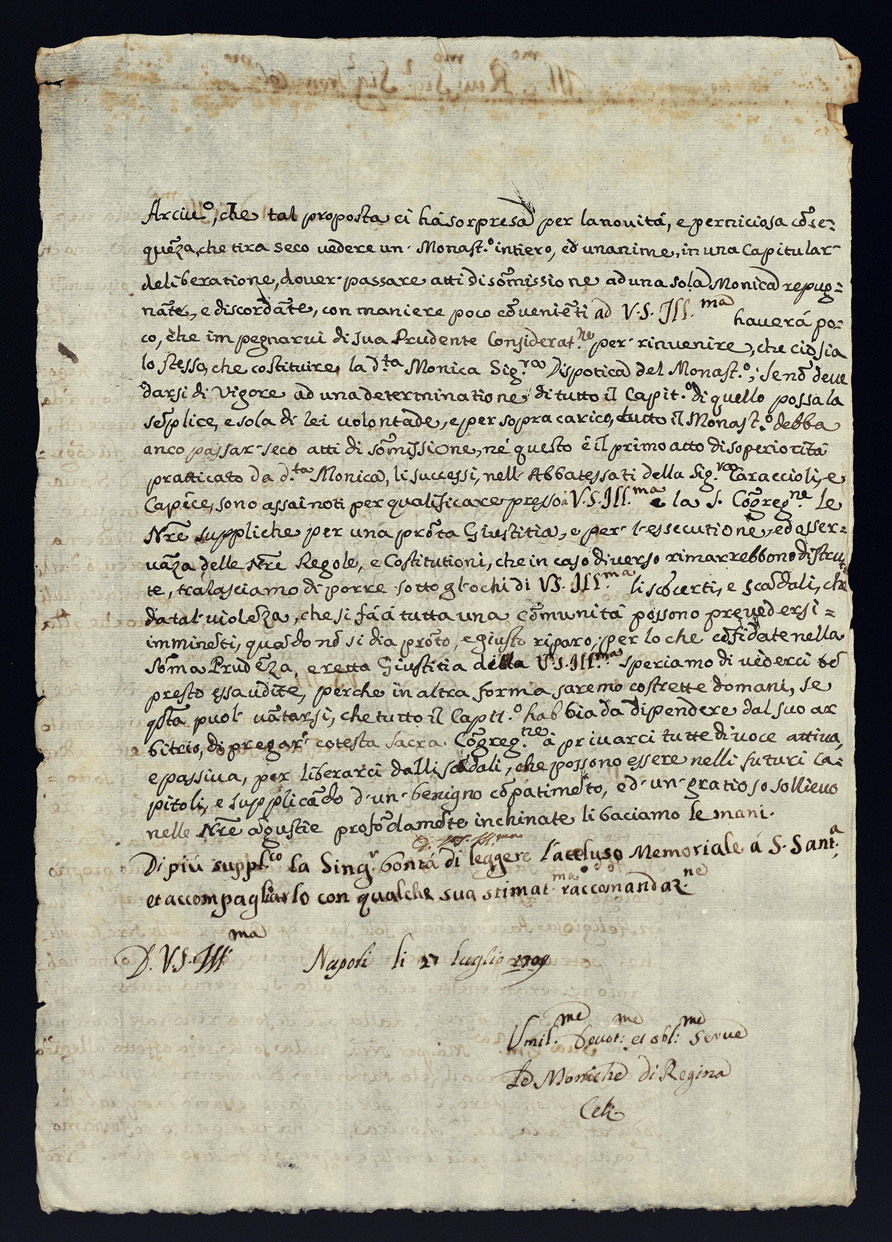 Arciu.º, che tal proposta ci há sorpresa per la novitá, e perniciosa cõse=
quẽza, che tira seco vedere un Monast.º intiero, ed unanime, in una Capitular
deliberatione, dover passare atti di sõmissione ad una sola Monica repug=
nãte, e discordãte, con maniere poco cõvenieti ad V.S. Ill.ma haverá po=
co, che impegnarvi di sua Prudente Considerat.ne per rinvenire, che ció sia
lo stesso, che costituire la d.ta Monica Sig.ra Dispotica del Monast.º; se nõ deve
darsi di Vigore ad una determinatione di tutto il Capit.º di quello possa la
sẽplice, e sola di lei volontade, e per sopra carico, tutto il Monast.º debba
anco passar seco atti di sõmissione, né questo é il primo atto di soperioritá
pratticato da d.ta Monica, li successi, nell Abbatessati della Sig.ra Caraccioli, e
Capece, sono assai noti per qualificare presso a V.S. Ill.ma e la S. Cõgreg.ne le
Nrẽ suppliche per una prõta Giustitia, e per l'essecutione, ed osser=
vãza delle Nrẽ Regole, e Costitutioni, che in caso diverso rimarrebbono distrut=
te, tralasciamo di porre sotto gl'ochi di V.S. Ill.ma li scõcerti, e scãdali, che
da tal violẽza, che si fá á tutta una Cõmunitá possono prevedersi=
imminẽti, quãdo nõ si dia prõto, e giusto riparo; per lo che cõfidate nella
Sõma Prudẽza, e retta Giustitia della V.S. Ill.ma speriamo di vederci bẽ
presto essaudite, perche in altra forma saremo costrette domani, se
qsta puol vãtarsi, che tutto il Capit.º habbia da dipendere dal suo ar
bitrio, di pregar cotesta Sacra Cõgreg.ne á privarci tutte di voce attiva,
e passiva, per liberarci dalli scãdali, che possono essere nelli futuri Ca=
pitoli, e supplicãdo d'un benigno cõpatimẽto, ed un gratioso sollievo
nelle Nrẽ ãgustie profõdamẽte inchinate li baciamo le mani.
Di piú suppl.co la Sing.r bontá di leggere l'accluso Memoriale á S. Sant.a
et accompagliarlo con qualche sua stimat.ma raccomandaz.ne
D. V.S. Ill.ma Napoli li 27 Luglio 1709
Vmil.me Devot.me et obl.me Serve
Le Moniche di Regina
Celi